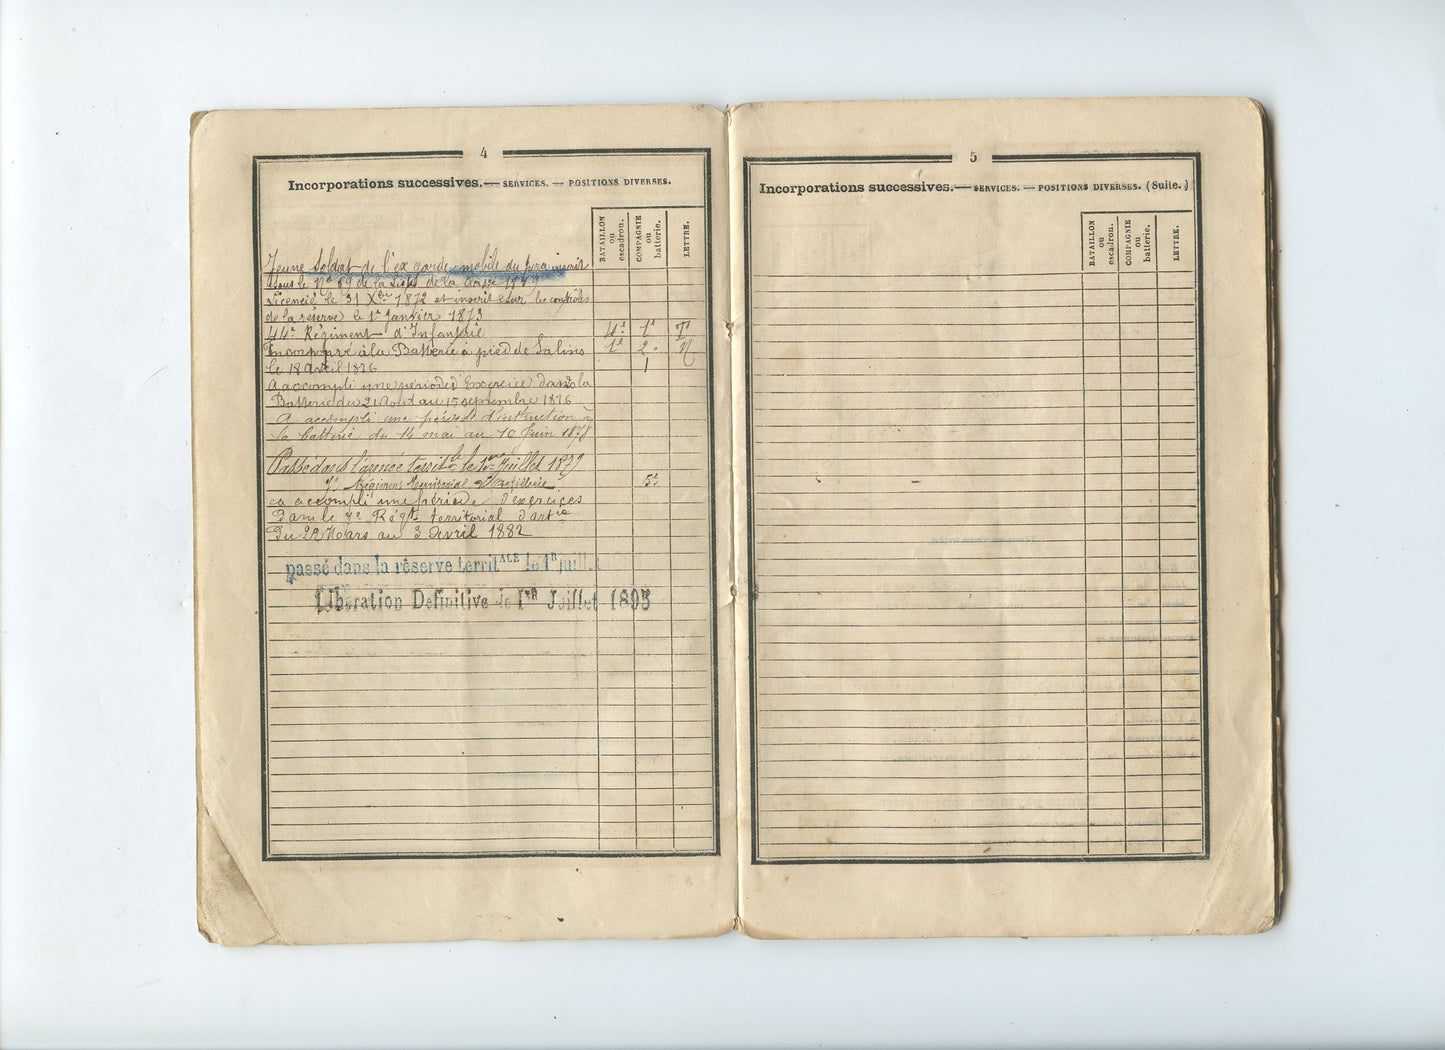 4
Incorporations successives. — SERVICES. — POSITIONS DIVERSES.
BATAILLON ou escadron.
COMPAGNIE ou batterie.
LETTRE.
Jeune Soldat de l'ex garde mobile du Jura inscrit
sous le N° 69 de la Liste de la classe
Licencié le 31 Xbre 1872 et inscrit sur les contrôles
de la réserve le 1er Janvier 1873
44e Régiment d'Infanterie 4e 1e
Incorporé à la Batterie à pied de Salins 1e 2
le 18 avril 1876 1
a accompli une période d'Exercice dans la
Batterie du 21 Aout au 15 septembre 1876
A accompli une période d'instruction à
la batterie du 14 mai au 10 Juin 1878
Passé dans l'armée territle le 1er Juillet 1879
7e Régiment territorial d'Artillerie 5e
a accompli une période d'exercices
Dans le 7e Régt territorial d'artie
Du 22 Mars au 3 Avril 1882
passé dans la réserve territALE le 1R juillet
Libération Definitive le 1ER Juillet 1895
5
Incorporations successives. — SERVICES. — POSITIONS DIVERSES. (Suite.)
BATAILLON ou escadron.
COMPAGNIE ou batterie.
LETTRE.